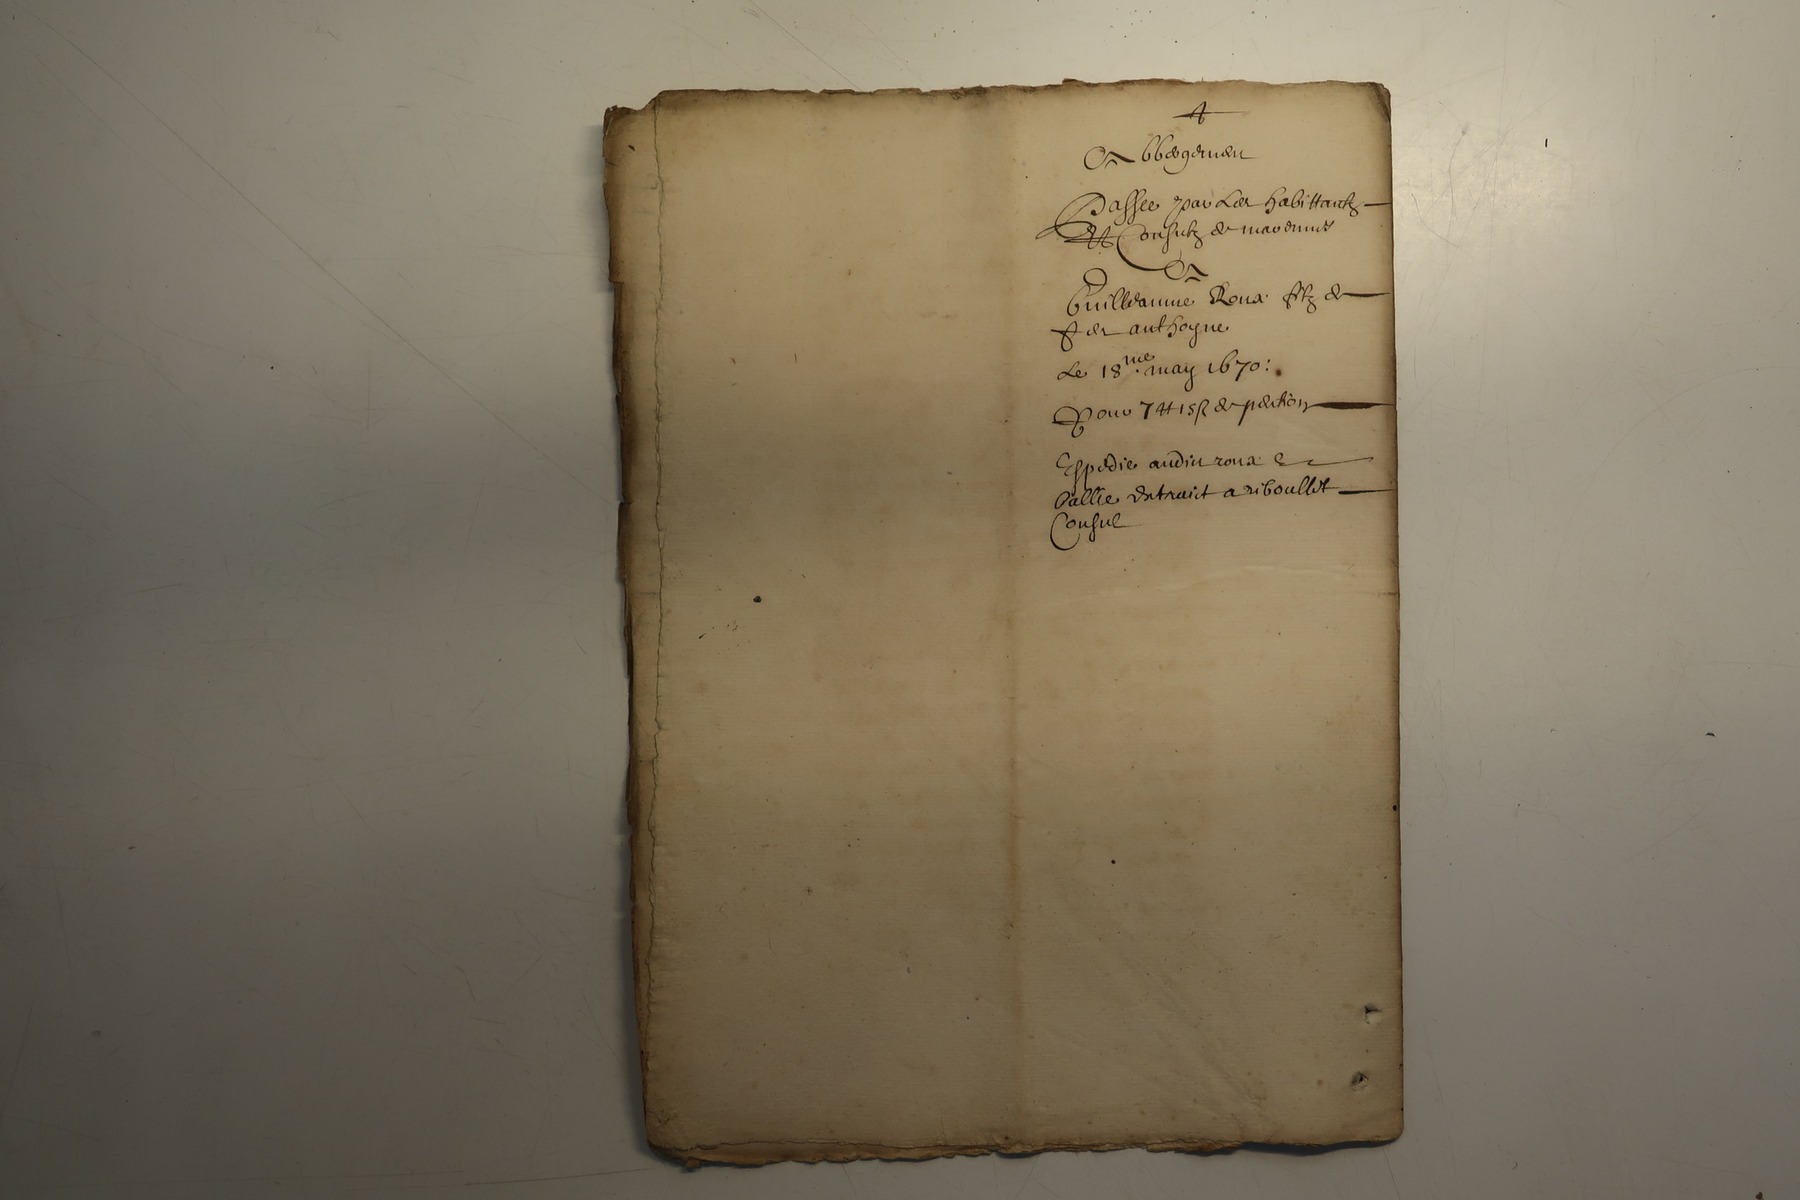 Abbergemen
Passée par Les habittantz
Et Consulz de
A
Guilleaume Roux filz de
feu anthoyne
Le 18me may 1670:
Pour 7 tt 15 ß de pention
Expedie audict roux Et
ballie extraict a riboullet
Consul